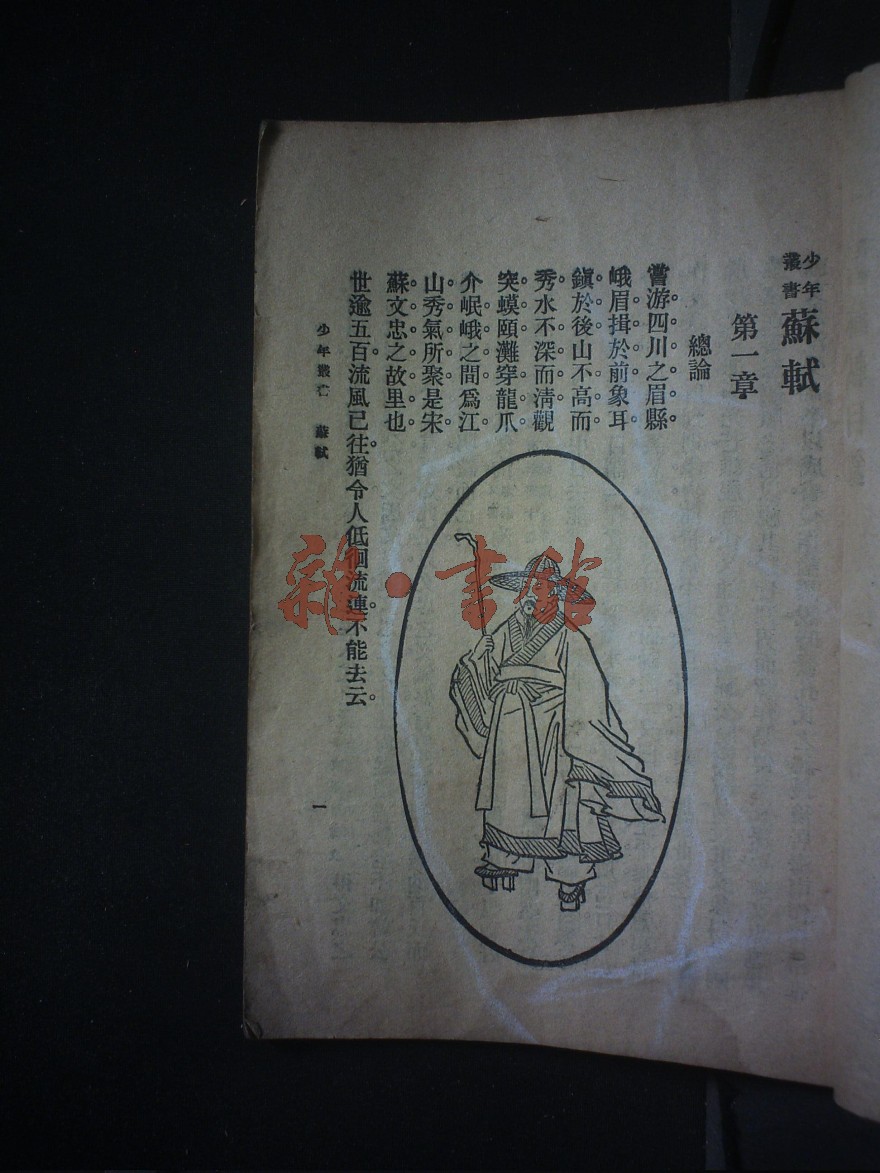 少年叢書 蘇軾
第一章
總論
嘗游四川之眉縣。
峨眉揖於前。象耳
鎮於後。山不高而
秀。水不深而清。觀
突蟆頤灘穿龍爪
介岷峨之間。爲江
山秀氣所聚。是宋
蘇文忠之故里也
世逾五百流風已往。猶令人低徊流連。不能去云。
少年叢書 蘇軾
一
雜·書館